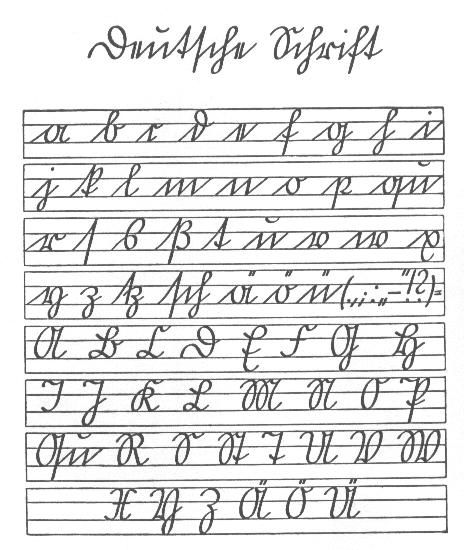 Deutsche Schrift
a b c d e f g h i
j k l m n o p qu
r ſ s ß t u v w x
y z tz ſch ä ö ü (.,;:„–"!?)=
A B C D E F G H
I J K L M N O P
Qu R S St T U V W
X Y Z Ä Ö Ü